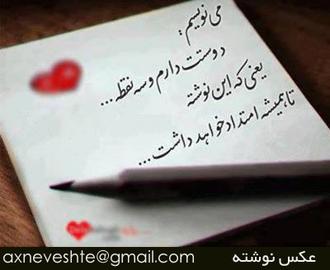 می نویسیم :
دوستت دارم و سه نقطه ...
یعنی که این نوشته
تا همیشه امتداد خواهد داشت ...
axneveshte@gmail.com
عکس نوشته